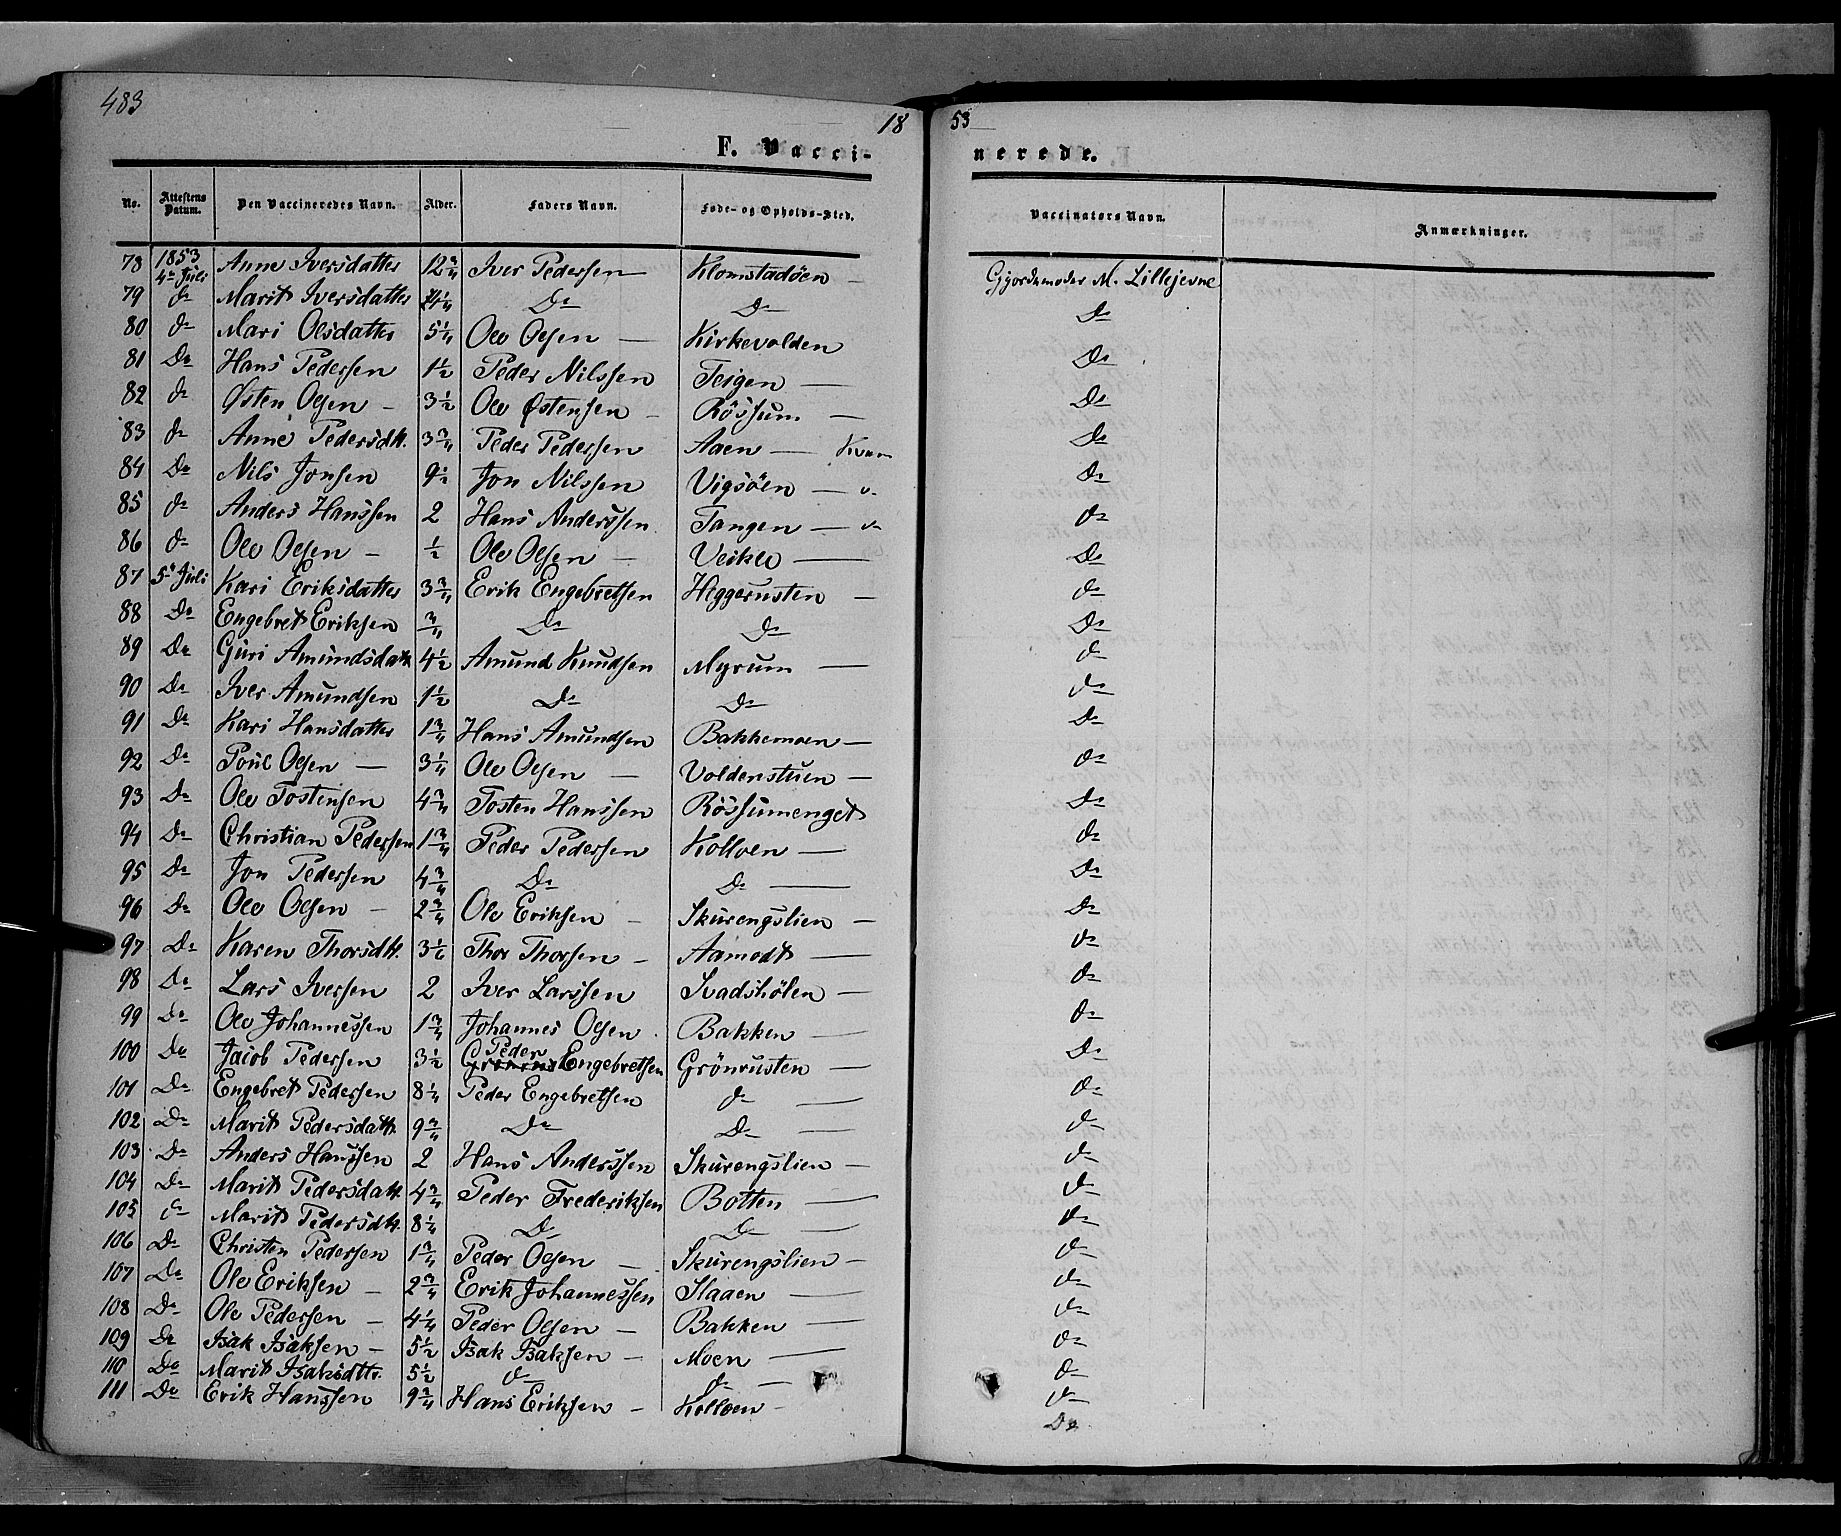 483
18 53
F. Vacci- nerede.
No. Attestens Datum. Den Vaccineredes Navn. Alder. Faders Navn. Føde- og Opholds-Sted. Vaccinators Navn. Anmærkninger.
78 1853 4de Juli Anne Iversdatter 12 3/4 Iver Pedersen Klomstadöen — Gjordemoder M. Lillejevne
79 do Marit Iversdatter Do Do Do
80 do Mari Olsdatter 5 1/4 Ole Olsen — Kirkevolden Do
81 Do Hans Pedersen 1 1/2 Peder Nilssen Teigen — Do
82 do Østen Olsen — 3 1/2 Ole Østensen — Rössum — Do
83 do Anne Pedersdtr. 3 3/4 Peder Pedersen Aaen — Kvam Do
84 Do Nils Jonsen 9 1/2 Jon Nilssen Vigsöen — do Do
85 do Anders Hanssen 2 Hans Anderssen Tangen — do Do
86 do Ole Olsen — 1/2 Ole Olsen — Veikle — do
87 5te Juli Kari Eriksdatter 3 3/4 Erik Engebretsen Heggerusten — Do
88 Do Engebret Eriksen 3/4 Do Do do
89 Do Guri Amundsdatt. 4 1/2 Amund Knudsen Myrum — do
90 Do Iver Amundsen 1 1/2 Do Do do
91 Do Kari Hansdatter 1 3/4 Hans Amundsen Bakkemoen — Do
92 Do Poul Olsen — 3 1/4 Ole Olsen — Voldenstuen — do
93 Do Ole Tostensen 4 3/4 Tosten Hanssen Rössumenget Do
94 Do Christian Pedersen 1 3/4 Peder Pedersen Kolloen — do
95 Do Jon Pedersen 4 3/4 Do Do — Do
96 Do Ole Olsen — 2 3/4 Ole Eriksen — Skurengslien — Do
97 Do Karen Thorsdtr. 3 1/2 Thor Thorsen — Aamodt — do
98 Do Lars Iversen 2 Iver Larssen Svadshölen — do
99 Do Ole Johannessen 1 3/4 Johannes Olsen Bakken — do
100 Do Jacob Pedersen 3 1/2 Peder Engebretsen Grönrusten — Do
101 Do Engebret Pedersen 8 1/4 Peder Engebretsen do — do
102 Do Marit Pedersdatt. 9 3/4 Do Do — do
103 Do Anders Hanssen 2 Hans Anderssen Skurengslien — do
104 Do Marit Pedersdatt. 4 3/4 Peder Frederiksen Botten — do
105 do Marit Pedersdtr. 8 1/4 Do Do — do
106 Do Christen Pedersen 1 3/4 Peder Olsen — Skurengslien — do
107 Do Ole Eriksen — 2 3/4 Erik Johannessen Haaen — do
108 Do Ole Pedersen — 4 1/4 Peder Olsen — Bakken — do
109 Do Isak Isaksen — 5 1/2 Isak Isaksen — Moen — do
110 Do Marit Isaksdtr. 5 1/2 do do — do
111 Do Erik Hanssen 9 3/4 Hans Eriksen — Kolloen — do
Do